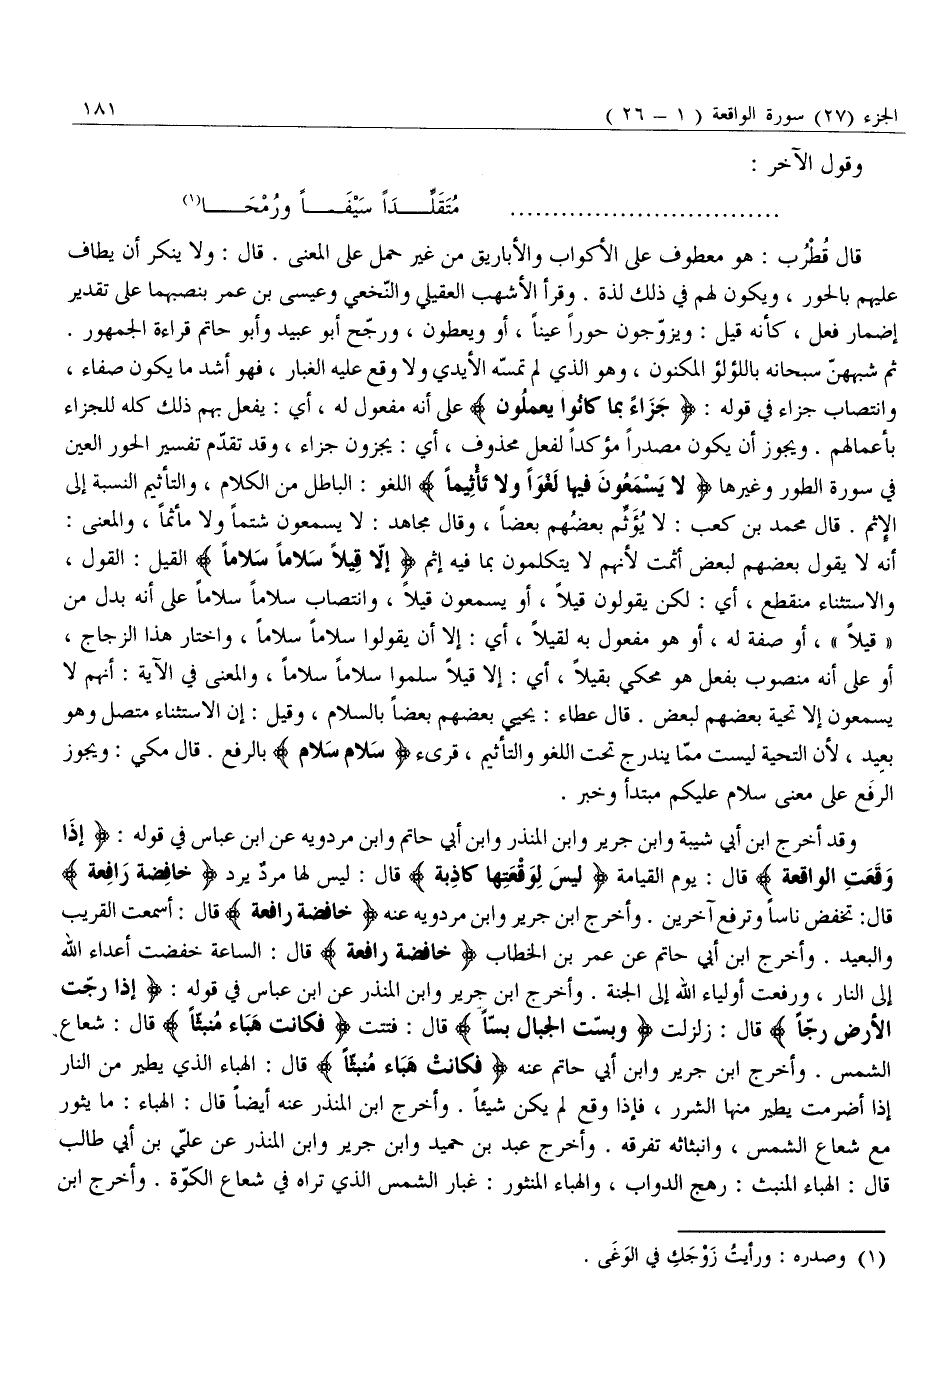 الجزء (٢٧) سورة الواقعة ( ١ – ٢٦ )
١٨١
وقول الآخر :
................................ مُتَقَلِّـــداً سَيْفَـــاً ورُمْحَـــا(١)
قال قُطْرُب : هو معطوف على الأكواب والأباريق من غير حمل على المعنى . قال : ولا ينكر أن يطاف
عليهم بالحور ، ويكون لهم في ذلك لذة . وقرأ الأشهب العقيلي والنّخعي وعيسى بن عمر بنصبهما على تقدير
إضمار فعل ، كأنه قيل : ويزوّجون حوراً عيناً ، أو ويعطون ، ورجّح أبو عبيد وأبو حاتم قراءة الجمهور .
ثم شبههنّ سبحانه باللؤلؤ المكنون ، وهو الذي لم تمسّه الأيدي ولا وقع عليه الغبار ، فهو أشد ما يكون صفاء ،
وانتصاب جزاء في قوله : ﴿ جَزَاءً بما كانُوا يعملُون ﴾ على أنه مفعول له ، أي : يفعل بهم ذلك كله للجزاء
بأعمالهم . ويجوز أن يكون مصدراً مؤكداً لفعل محذوف ، أي : يجزون جزاء ، وقد تقدّم تفسير الحور العين
في سورة الطور وغيرها ﴿ لا يَسْمَعُونَ فيها لَغْوَاً ولا تَأْثِيماً ﴾ اللغو : الباطل من الكلام ، والتأثيم النسبة إلى
الإثم . قال محمد بن كعب : لا يُؤَثِّم بعضُهم بعضاً ، وقال مجاهد : لا يسمعون شتماً ولا مأثماً ، والمعنى :
أنه لا يقول بعضهم لبعض أثمت لأنهم لا يتكلمون بما فيه إثم ﴿ إلّا قِيلاً سَلاماً سَلاماً ﴾ القيل : القول ،
والاستثناء منقطع ، أي : لكن يقولون قيلاً ، أو يسمعون قيلاً ، وانتصاب سلاماً سلاماً على أنه بدل من
« قيلاً » ، أو صفة له ، أو هو مفعول به لقيلاً ، أي : إلا أن يقولوا سلاماً سلاماً ، واختار هذا الزجاج ،
أو على أنه منصوب بفعل هو محكي بقيلاً ، أي : إلا قيلاً سلموا سلاماً سلاماً ، والمعنى في الآية : أنهم لا
يسمعون إلا تحية بعضهم لبعض . قال عطاء : يحيي بعضهم بعضاً بالسلام ، وقيل : إن الاستثناء متصل وهو
بعيد ، لأن التحية ليست ممّا يندرج تحت اللغو والتأثيم ، قرىء ﴿ سَلام سَلام ﴾ بالرفع . قال مكي : ويجوز
الرفَع على معنى سلام عليكم مبتدأ وخبر .
وقد أخرج ابن أبي شيبة وابن جرير وابن المنذر وابن أبي حاتم وابن مردويه عن ابن عباس في قوله : ﴿ إذَا
وَقَعَتِ الواقعة ﴾ قال : يوم القيامة ﴿ ليسَ لِوَقْعَتِها كاذِبة ﴾ قال : ليس لها مردّ يرد ﴿ خافِضة رَافِعة ﴾
قال: تخفض ناساً وترفع آخرين . وأخرج ابن جرير وابن مردويه عنه ﴿ خافضة رافعة ﴾ قال : أسمعت القريب
والبعيد . وأخرج ابن أبي حاتم عن عمر بن الخطاب ﴿ خافضة رافعة ﴾ قال : الساعة خفضت أعداء الله
إلى النار ، ورفعت أولياء الله إلى الجنة . وأخرج ابن جرير وابن المنذر عن ابن عباس في قوله : ﴿ إذا رجّت
الأرض رجّاً ﴾ قال : زلزلت ﴿ وبسّت الجبال بسّاً ﴾ قال : فتتت ﴿ فكانت هَبَاء مُنبثّاً ﴾ قال : شعاع
الشمس . وأخرج ابن جرير وابن أبي حاتم عنه ﴿ فكانتْ هَبَاء مُنبثّاً ﴾ قال : الهباء الذي يطير من النار
إذا أضرمت يطير منها الشرر ، فإذا وقع لم يكن شيئاً . وأخرج ابن المنذر عنه أيضاً قال : الهباء : ما يثور
مع شعاع الشمس ، وانبثاثه تفرقه . وأخرج عبد بن حميد وابن جرير وابن المنذر عن عليّ بن أبي طالب
قال : الهباء المنبث : رهج الدواب ، والهباء المنثور : غبار الشمس الذي تراه في شعاع الكوّة . وأخرج ابن
(١) وصدره : ورأيتُ زَوْجَكِ في الوَغَى .